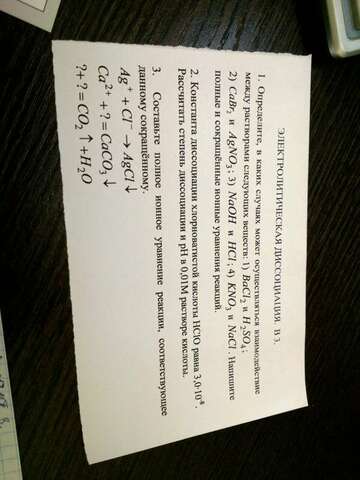 ЭЛЕКТРОЛИТИЧЕСКАЯ ДИССОЦИАЦИЯ. В 3.
1. Определите, в каких случаях может осуществляться взаимодействие
между растворами следующих веществ: 1) BaCl₂ и H₂SO₄;
2) CaBr₂ и AgNO₃; 3) NaOH и HCl; 4) KNO₃ и NaCl. Напишите
полные и сокращённые ионные уравнения реакций.
2. Константа диссоциации хлорноватистой кислоты HClO равна 3,0·10⁻⁸.
Рассчитать степень диссоциации и pH в 0,01М растворе кислоты.
3. Составьте полное ионное уравнение реакции, соответствующее
данному сокращённому.
Ag⁺ + Cl⁻ → AgCl↓
Ca²⁺ + ? = CaCO₃↓
? + ? = CO₂↑ + H₂O